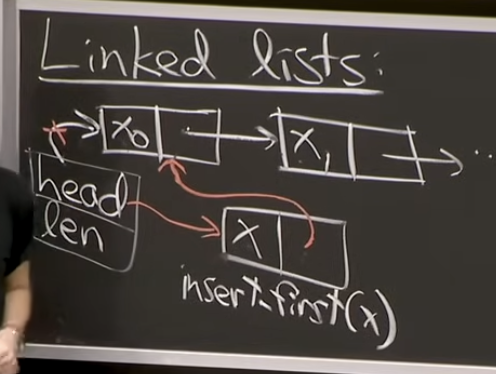 Linked lists:
x₀ x₁ ..
head
len
x
insert_first(x)